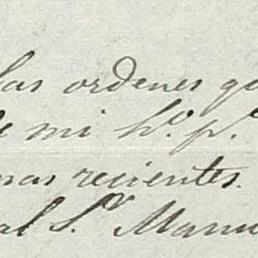 las ordenes q
de mi h.º p.r
mas recientes.
al S.r Manu